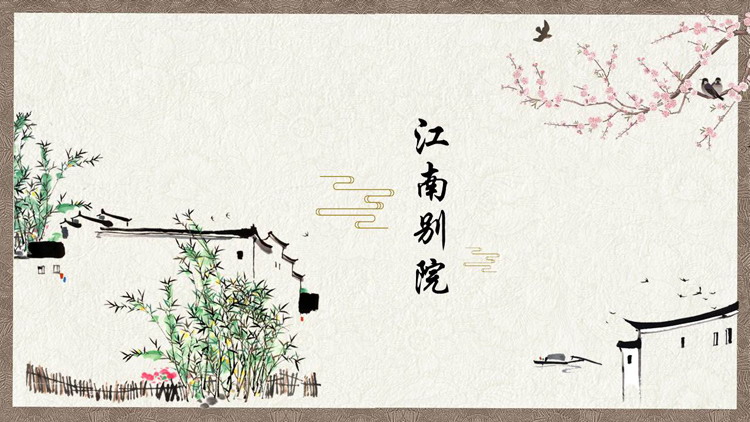 江南别院